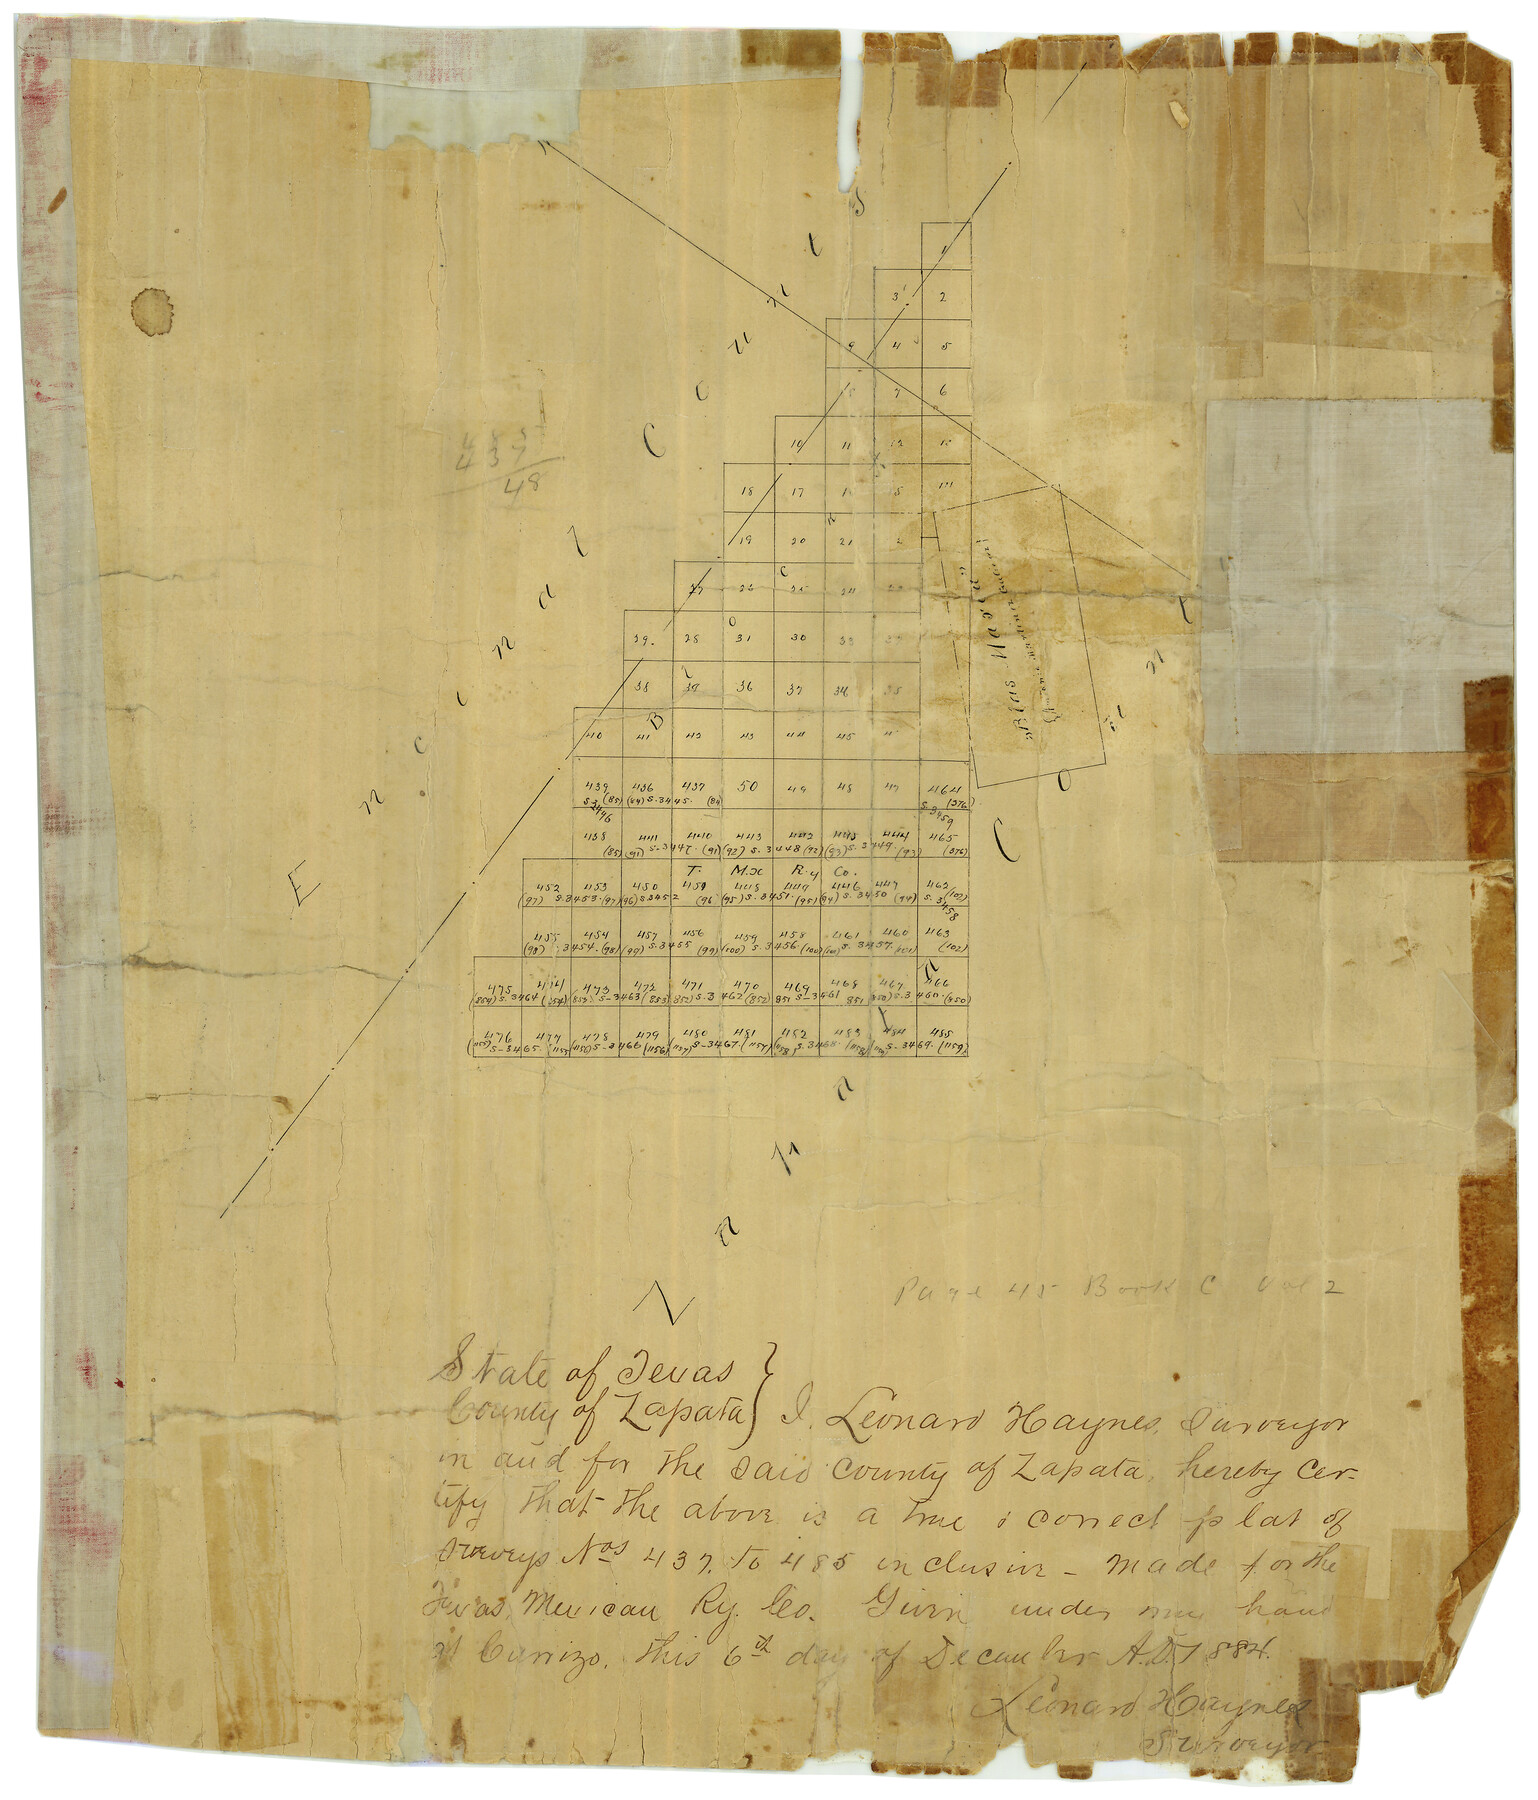 Encinal Counts
Zapata Count
Blas Maria
1
3 2
9 4 5
8 7 6
10 11 12 13
18 17 16 15 14
19 20 21
27 26 25 24
29. 28 31 30 33
38 39 36 37 34 35
40 41 42 43 44 45
B L O C
439 436 437 50 49 48 47 464
(85) (84) S. 3445. (84) (376)
S. 3446 S. 3459
438 441 440 443 442 445 444 465
(85) (91) S-3447. (91) (92) S. 3448 (92) (93) S. 3449. (93) (376)
T. Mx Ry Co.
452 453 450 451 448 449 446 447 462
(97) S. 3453. (97) (96) S. 3452 (96 (95) S. 3451. (95) (94) S. 3450 (94) S. 3458 (102)
455 454 457 456 459 458 461 460 463
(98) 3454. (98) (99) S. 3455 (99) (100) S. 3456 (100) S. 3457. (102)
475 474 473 472 471 470 469 468 467 466
(854) S. 3464 (854) (853) S-3463 (853) 852) S. 3462 (852) 851 S-3461 851 850) S. 3460. (850)
476 477 478 479 480 481 482 483 484 485
(1155) S-3465. (1155 (1156) S-3466 (1156) (1157) S-3467. (1157) (1158) S. 3468. (1158) S-3469. (1159)
485
437
48
Page 45 Book C Vol 2
State of Texas }
County of Zapata } I, Leonard Haynes, Surveyor
in and for the said County of Zapata, hereby cer-
tify that the above is a true & correct plat of
surveys Nos 437. to 485 inclusive - made for the
Texas Mexican Ry. Co. Given under my hand
at Carrizo, this 6th day of December A.D. 1884.
Leonard Haynes
Surveyor